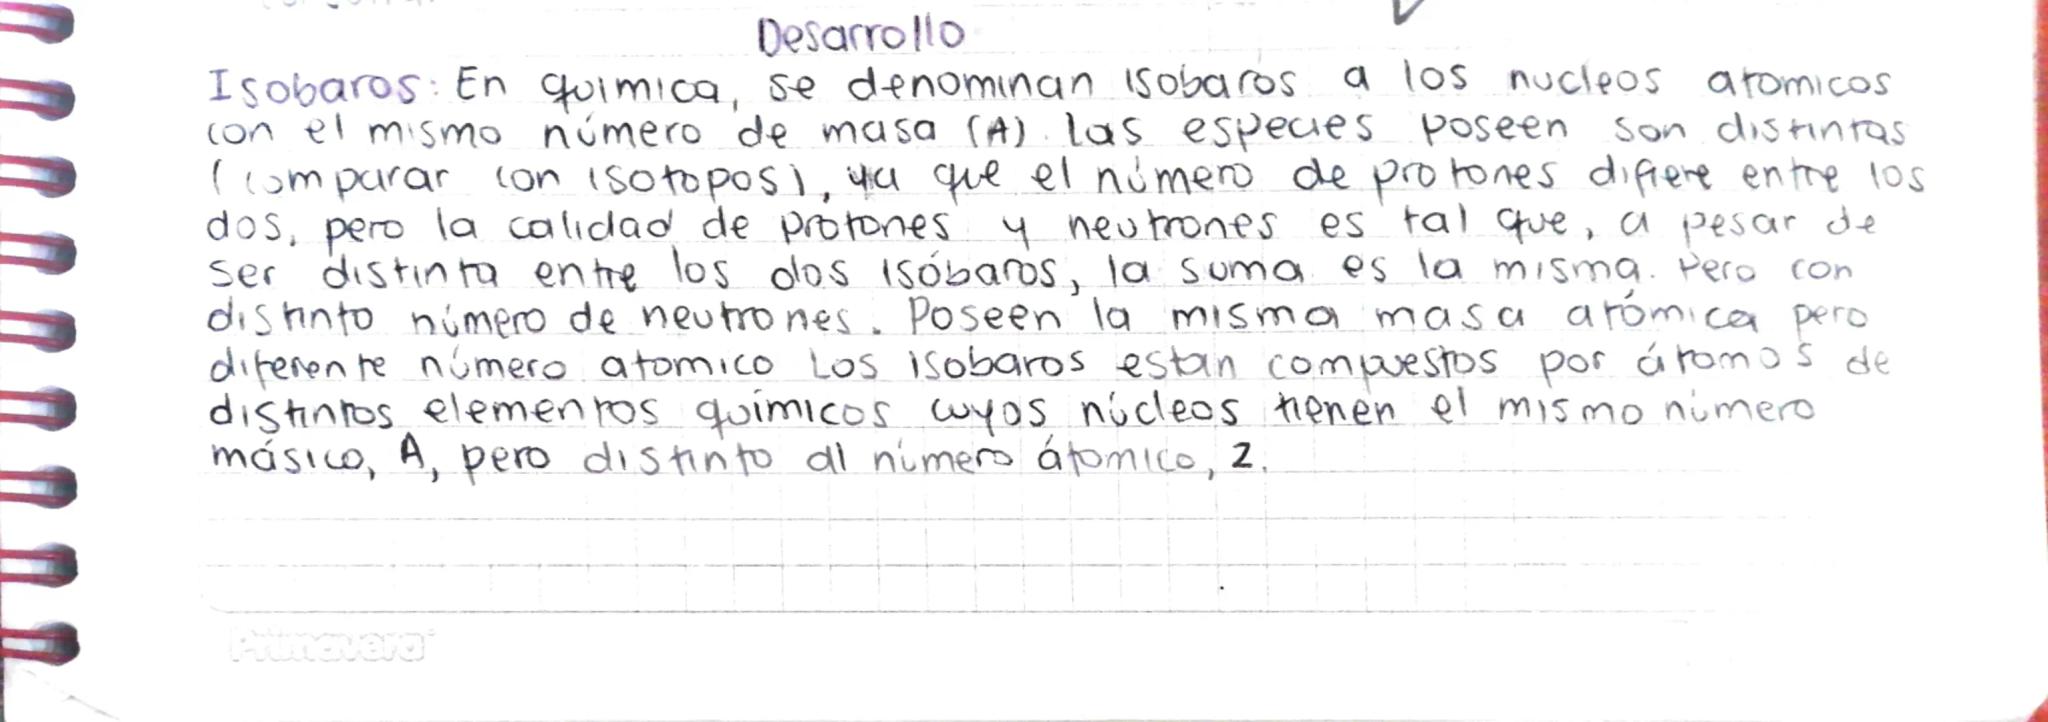 Desarrollo
Isobaros: En química, se denominan isobaros a los nucleos atomicos
con el mismo número de masa (A). Las especies poseen son distintas
(comparar con isotopos), ya que el número de protones difiere entre los
dos, pero la calidad de protones y neutrones es tal que, a pesar de
ser distinta entre los dos isóbaros, la suma es la misma. Pero con
distinto número de neutrones. Poseen la misma masa atómica pero
diferente número atomico Los isobaros estan compuestos por átomos de
distintos elementos químicos cuyos núcleos tienen el mismo número
másico, A, pero distinto al número átomico, Z.
Primavera